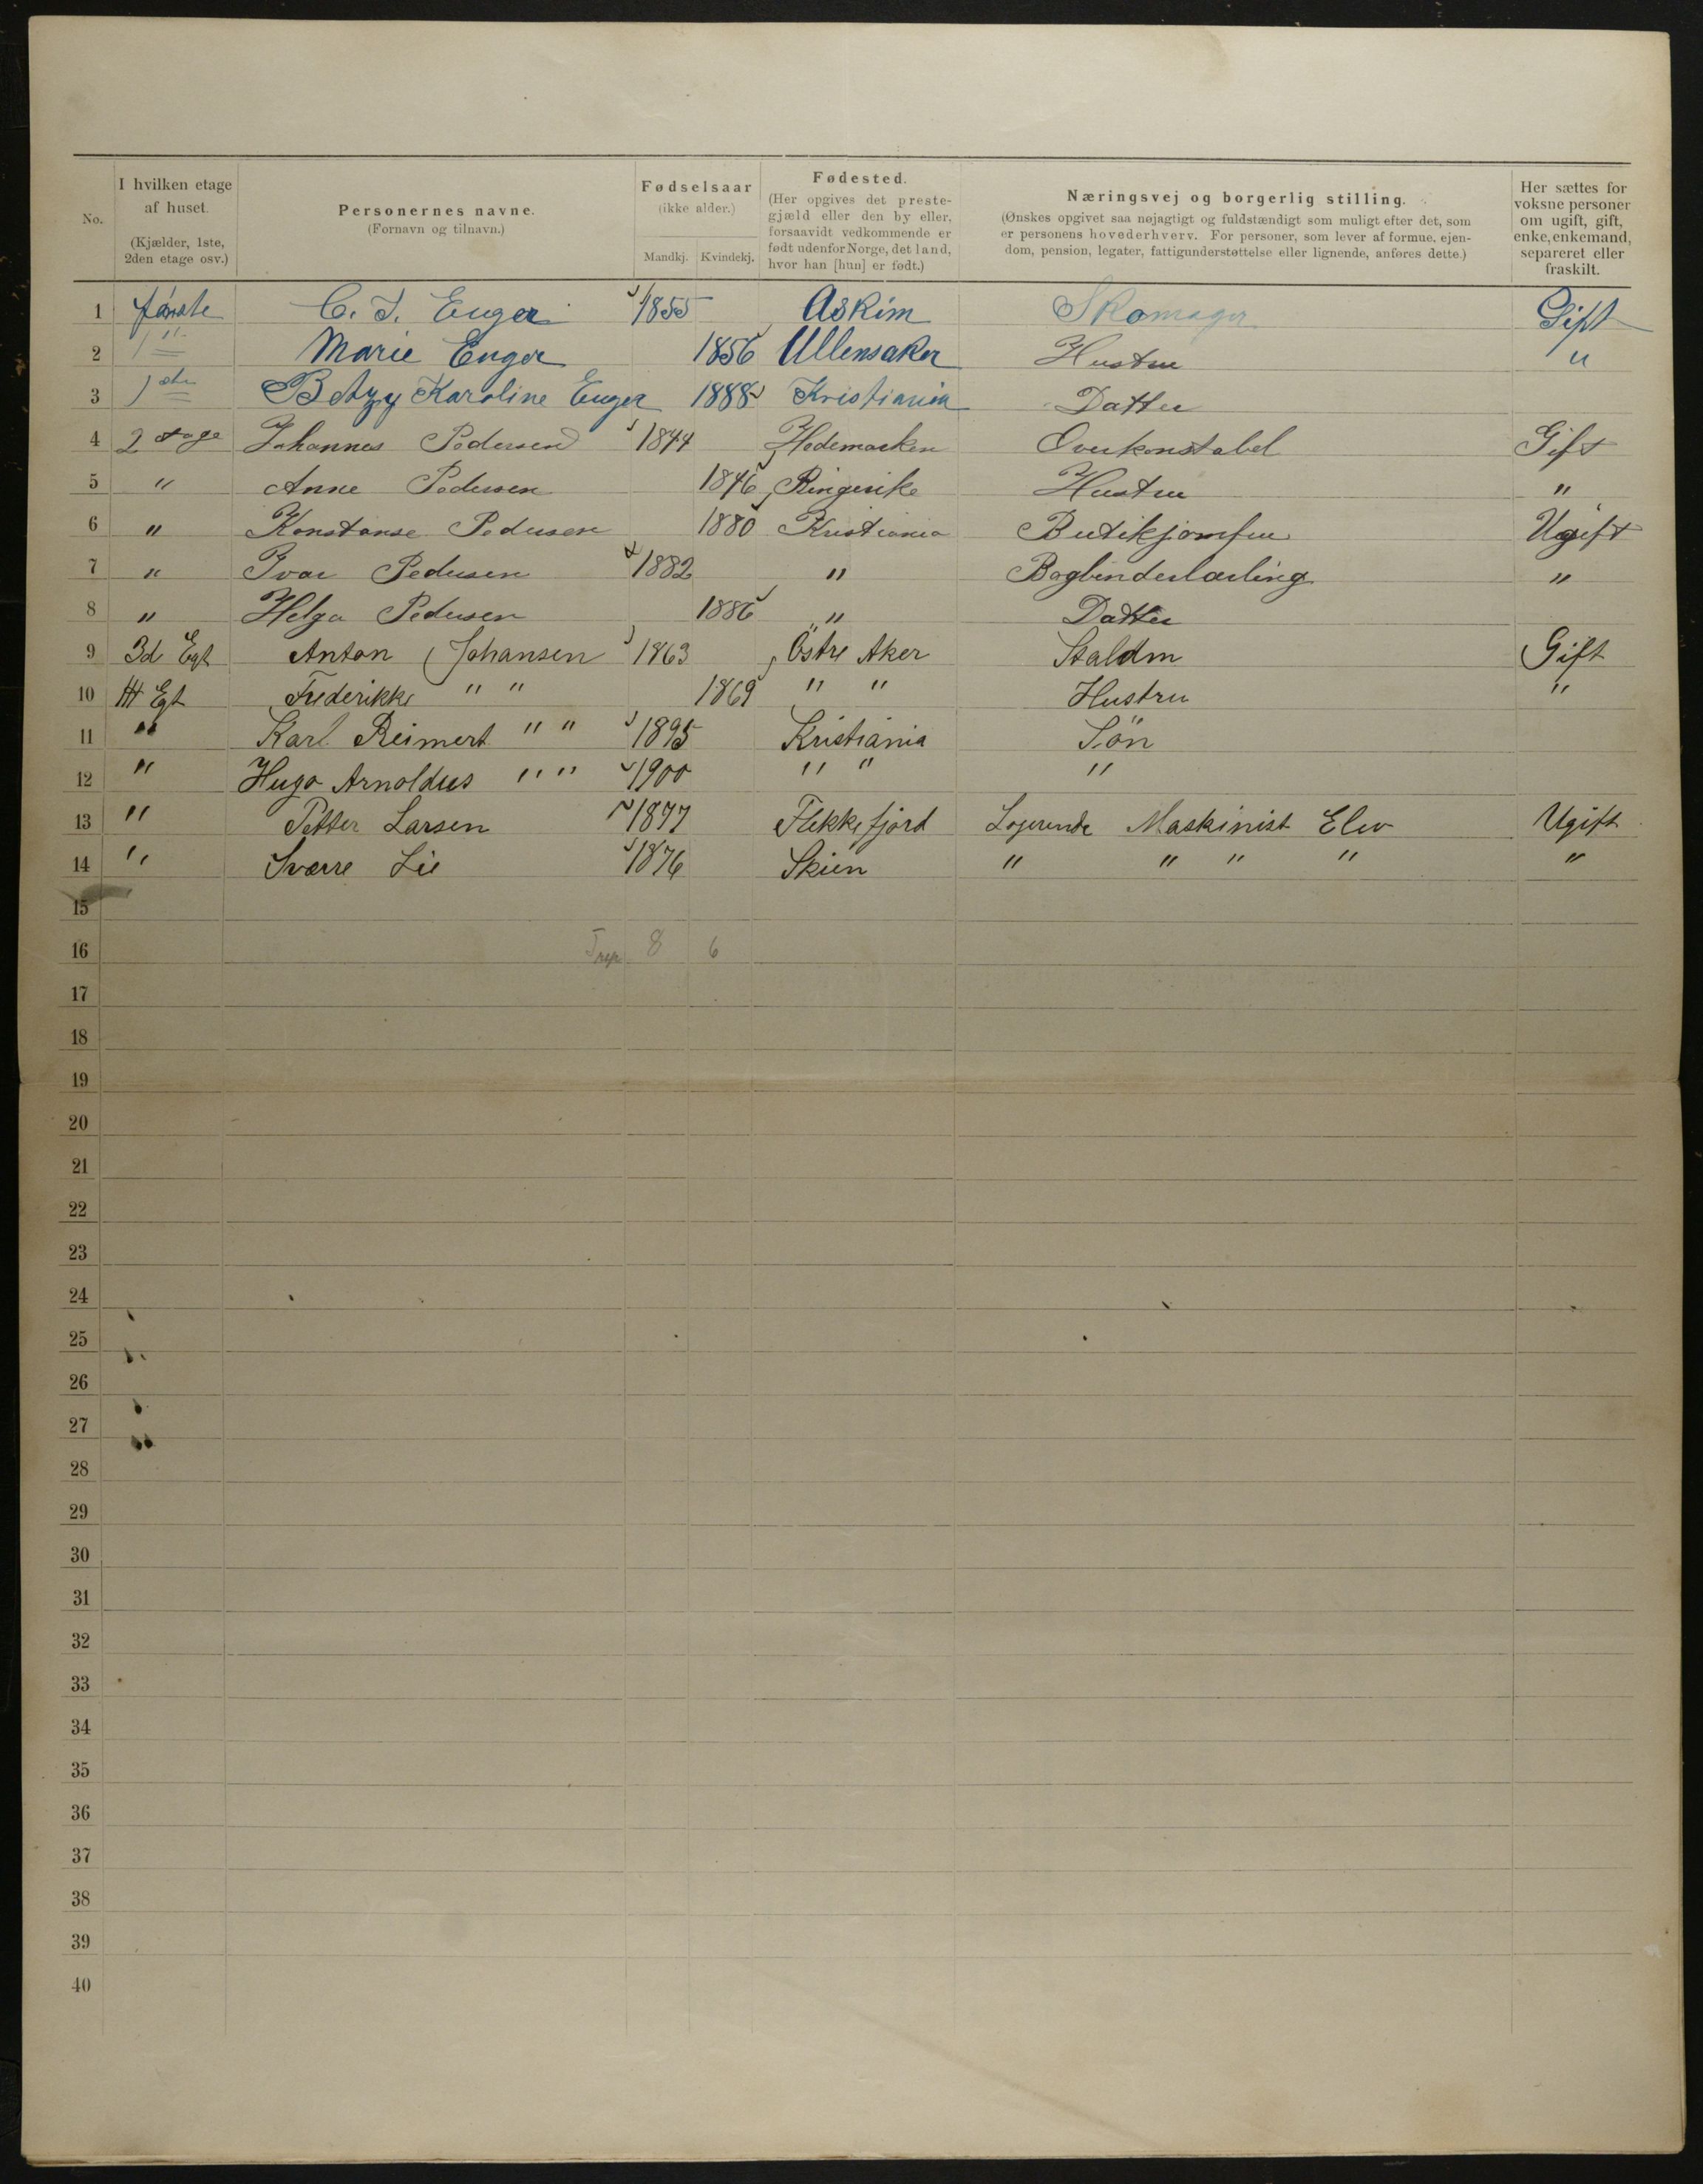 No.
I hvilken etage af huset.
(Kjælder, 1ste, 2den etage osv.)
Personernes navne.
(Fornavn og tilnavn.)
Fødselsaar
(ikke alder.)
Mandkj. Kvindekj.
Fødested.
(Her opgives det preste-
gjæld eller den by eller,
forsaavidt vedkommende er
født udenfor Norge, det land,
hvor han [hun] er født.)
Næringsvej og borgerlig stilling.
(Ønskes opgivet saa nøjagtigt og fuldstændigt som muligt efter det, som
er personens hovederhverv. For personer, som lever af formue, ejen-
dom, pension, legater, fattigunderstøttelse eller lignende, anføres dette.)
Her sættes for
voksne personer
om ugift, gift,
enke, enkemand,
separeret eller
fraskilt.
1 første C. J. Enger 1855 Askim Skomager Gift
2 1 " Marie Enger 1856 Ullensaker Hustru "
3 1ste Betzy Karoline Enger 1888 Kristiania Datter
4 2 etage Johannes Pedersen 1844 Hedemarken Overkonstabel Gift
5 " Anne Pedersen 1846 Ringerike Hustru "
6 " Konstanse Pedersen 1880 Kristiania Butikjomfru Ugift
7 " Ivar Pedersen 1882 " Bogbinderlærling "
8 " Helga Pedersen 1886 " Datter
9 3d Egt Anton Johansen 1863 Östre Aker Staldm Gift
10 Egt Frederikke " " 1869 " " Hustru "
11 " Karl Reimert " " 1895 Kristiania Sön
12 " Hugo Arnoldus " " 1900 " " "
13 " Petter Larsen 1877 Flekkefjord Logerende Maskinist Elev Ugift
14 " Sverre Lie 1876 Skien " " " " "
15
16 8 6
17
18
19
20
21
22
23
24
25
26
27
28
29
30
31
32
33
34
35
36
37
38
39
40